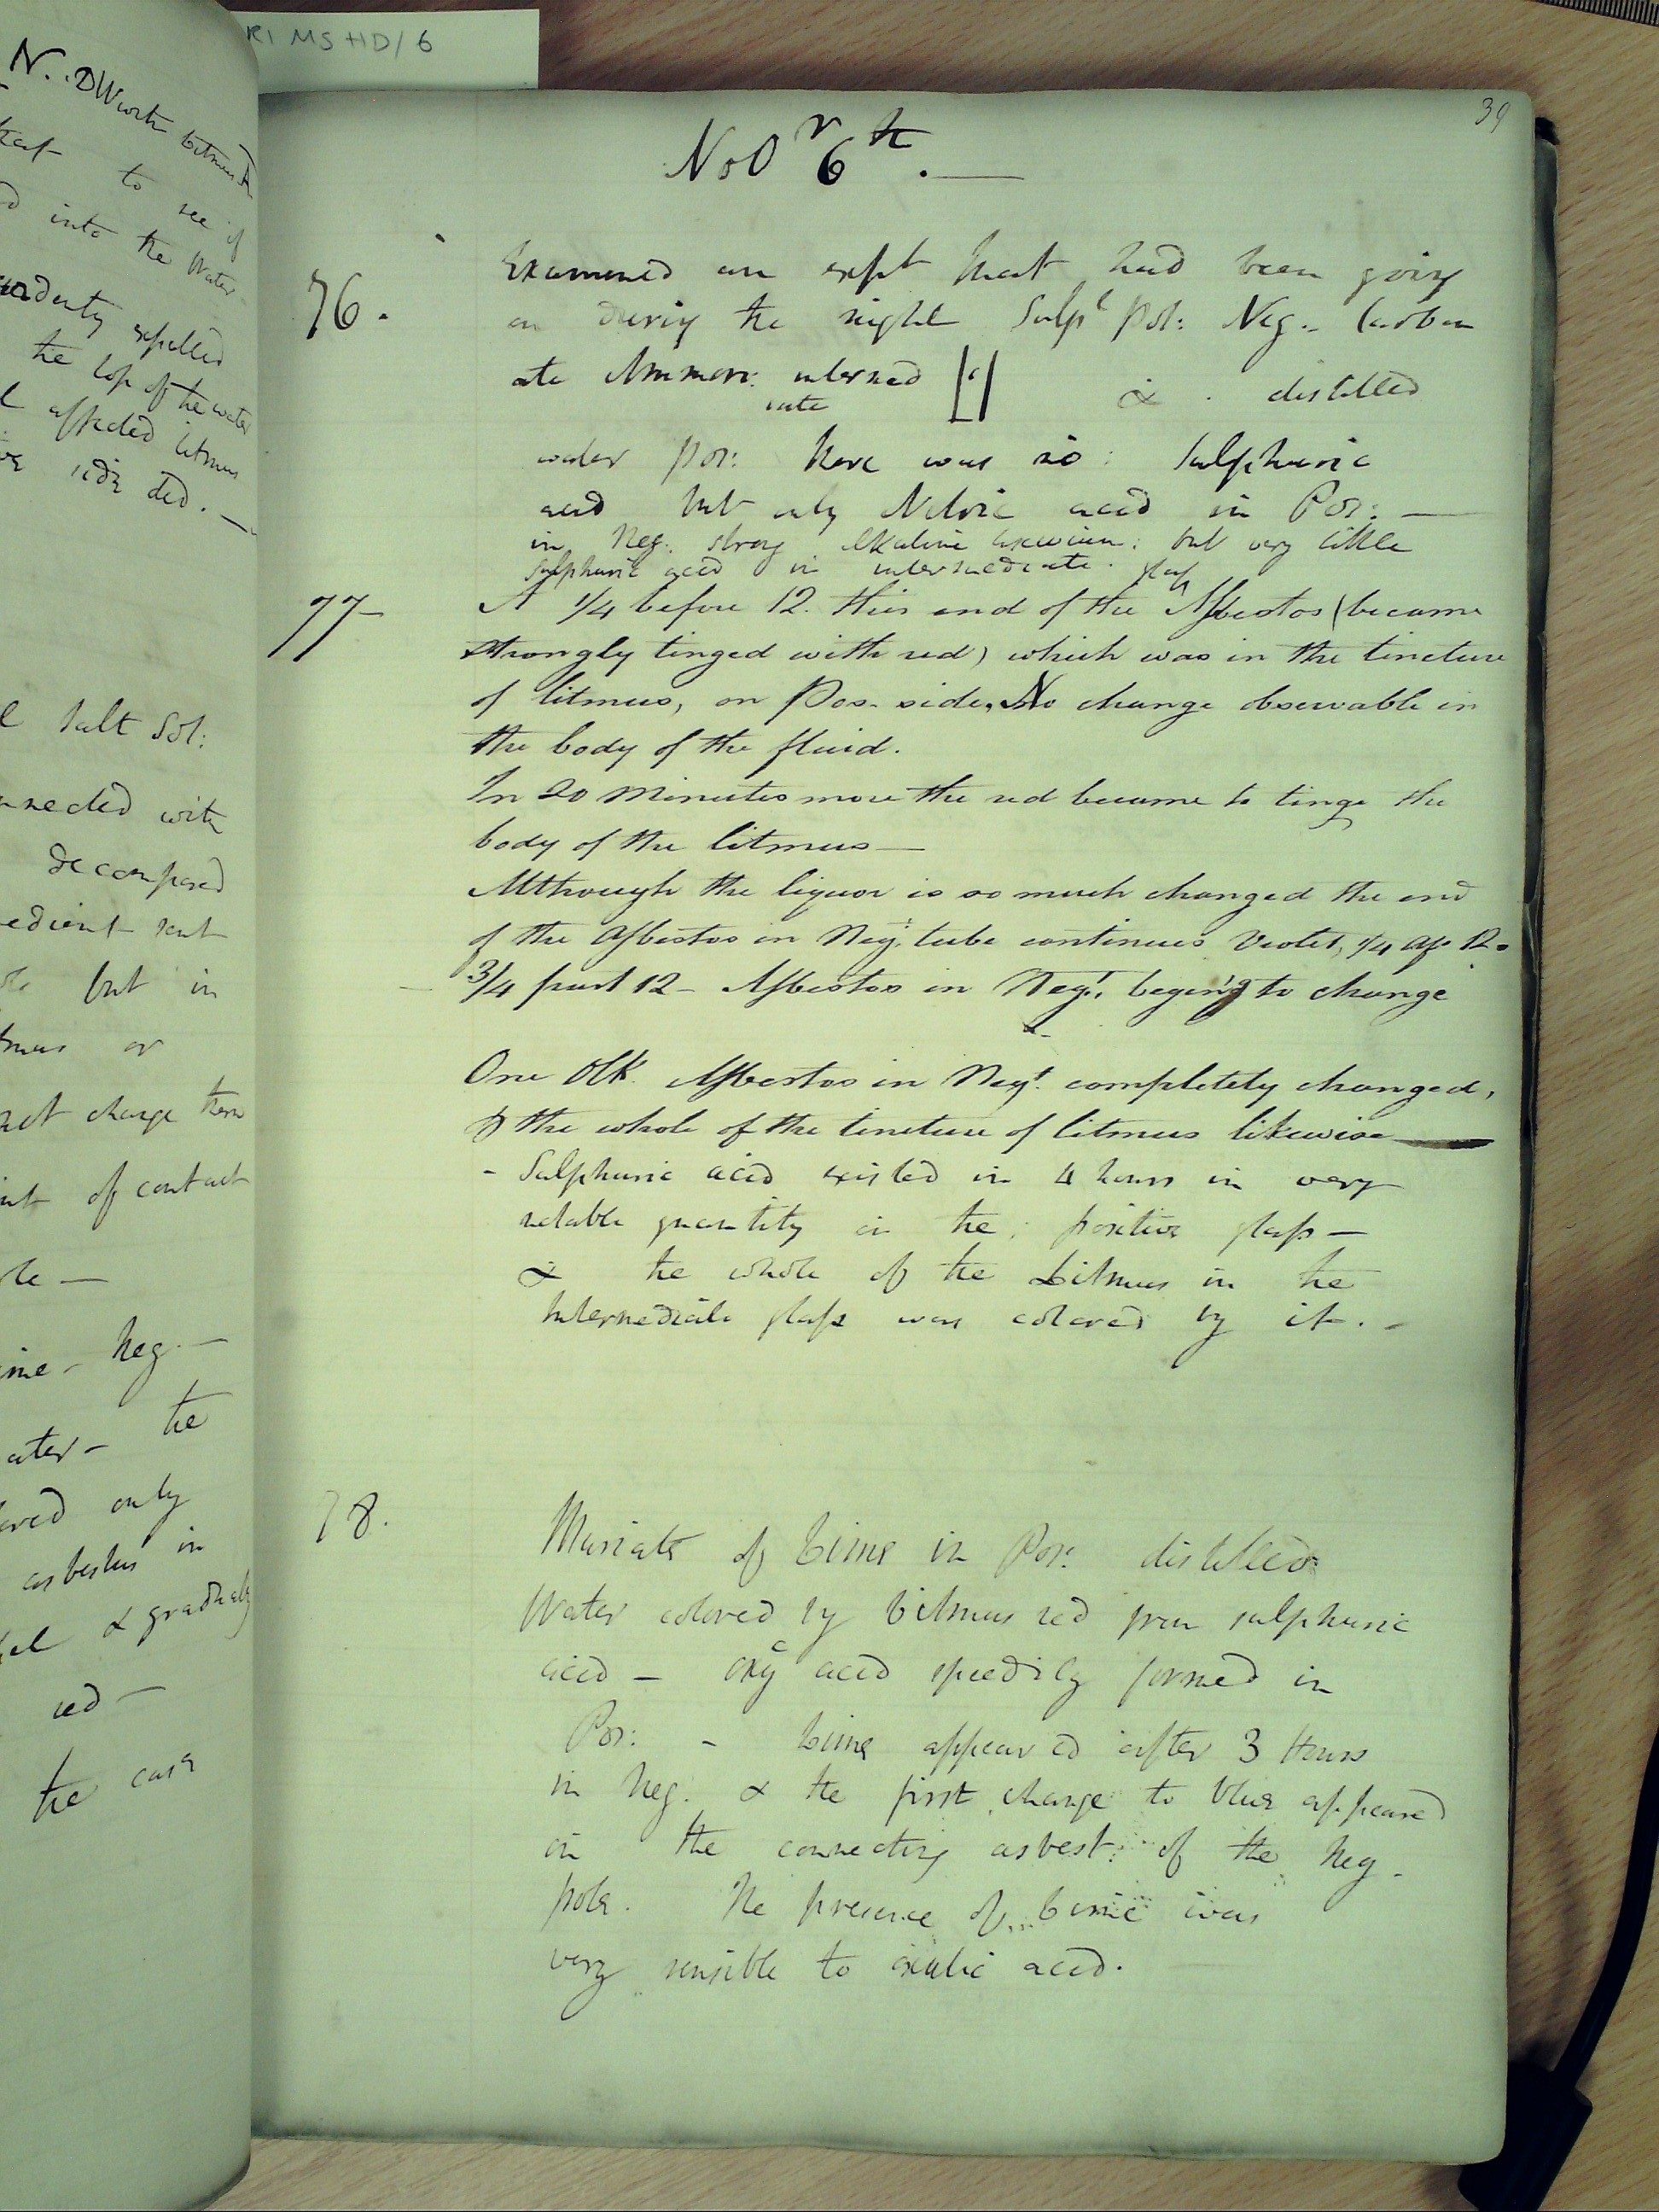 RI MS HD/6
N.
to see if
into the Water
expelled
the top of the water
affected litmus
side ded. —
Salt Sol:
with
decomposed
but in
or
not change them
of contact
Neg. —
the
only
asbestus in
& gradually
red —
the case
39
Nov 6th. —
76.
Examined an expt that had been going
on during the night Sulpt Pot: Neg. Carbon
ate Ammon: intermed
iate & distilled
water Pos: there was no: Sulphuric
acid but only Nitric acid in Pos: —
in Neg. strong alkaline: but very little
Sulphuric acid in intermediate. glass
77
A 1/4 before 12. this end of the Asbestos (became
strongly tinged with red) which was in the tincture
of litmus, on Pos. side, No change observable in
the body of the fluid.
In 20 Minutes more the red became to tinge the
body of the litmus —
Although the liquor is so much changed the end
of the Asbestos in Neg: tube continues Violet, 1/4 af 12.
— 3/4 past 12 – Asbestos in Negt. begin'g to change
One Olk. Asbestos in Negt. completely changed,
& the whole of the tincture of litmus likewise —
- Sulphuric acid existed in 4 hours in very
notable quantity in the: positive glass —
& the whole of the Litmus in the
Intermediate glass was colored by it. -
78.
Muriate of Lime in Pos: distilled
Water colored by Litmus red from sulphuric
acid – oxyc acid speedily formed in
Pos: - Lime appeared after 3 Hours
in Neg. & the first change to blue appeared
in the connecting asbest: of the Neg.
pole. The presence of Lime was
very sensible to oxalic acid.